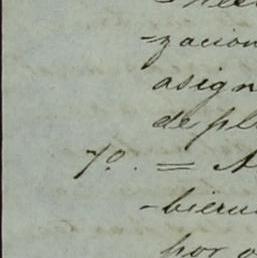 -zacion
asign
de pl
7º. = A
-bieru
por o